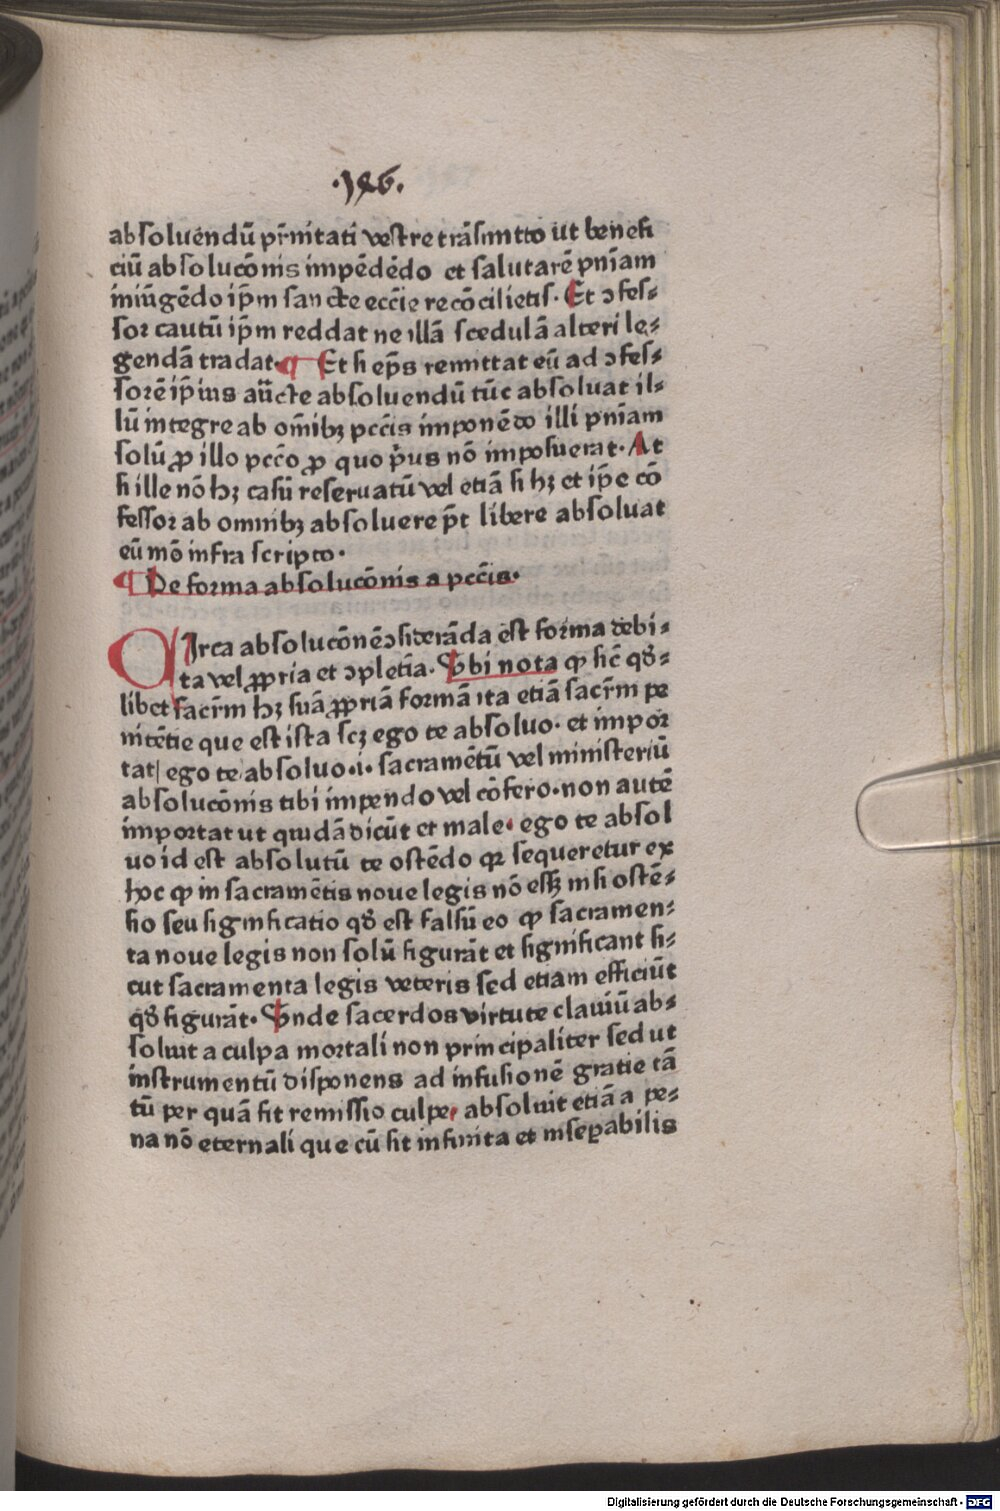 ·196·
absoluendū pr̄nitati vestre trāsmitto ut benefi
ciū absolucōnis impēdēdo et salutarē pn̄iam
iniūgēdo ip̄m sancte ecc̄ie recōcilietis. Et ɔfes⸗
sor cautū ip̄m reddat ne illā scedulā alteri le⸗
gendā tradat. ¶ Et si ep̄s remittat eū ad ɔfes⸗
sorē ip̄ius au̅cte absoluendū tūc absoluat il⸗
lū integre ab om̄ibꝫ pcc̄is imponēdo illi pn̄iam
solū ꝓ illo pcc̄o ꝓ quo p̄us nō imposuerat. At
si ille nō hꝫ casū reseruatū vel etiā si hꝫ et ip̄e cō
fessor ab omnibꝫ absoluere pt̄ libere absoluat
eū mō infra scripto.
¶ De forma absolucōnis a pcc̄is.
CIrca absolucōnē ɔsiderāda est forma debi⸗
ta vel ꝓpria et ɔpletīa. Vbi nota ꝙ sic̄ qð⸗
libet sacr̄m hꝫ suā ꝓpriā formā ita etiā sacr̄m pe
nitētie que est ista scꝫ ego te absoluo. et impor
tat| ego te absoluo .i. sacramētū vel ministeriū
absolucōnis tibi impendo vel cōfero. non autē
importat ut quidā dicūt et male. ego te absol
uo id est absolutū te ostēdo qꝛ sequeretur ex
hoc ꝙ in sacramētis noue legis nō essꝫ nisi ostē⸗
sio seu significatio qð est falsū eo ꝙ sacramen⸗
ta noue legis non solū figurāt et significant si⸗
cut sacramenta legis veteris sed etiam efficiūt
qð figurāt. Vnde sacerdos virtute clauiū ab⸗
soluit a culpa mortali non principaliter sed ut
instrumentū disponens ad infusionē gratie tā
tū per quā fit remissio culpe, absoluit etiā a pe⸗
na nō eternali que cū sit infinita et inseꝑabilis
Digitalisierung gefördert durch die Deutsche Forschungsgemeinschaft - DFG